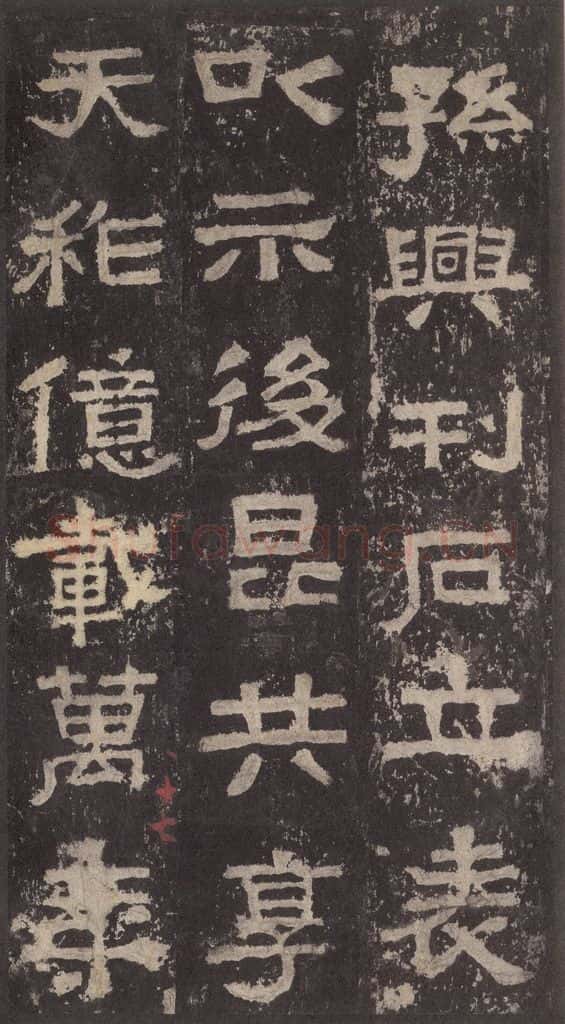 孫興刊石立表
㕥示後昆共享
天祚億載萬年
Shufawang.CN